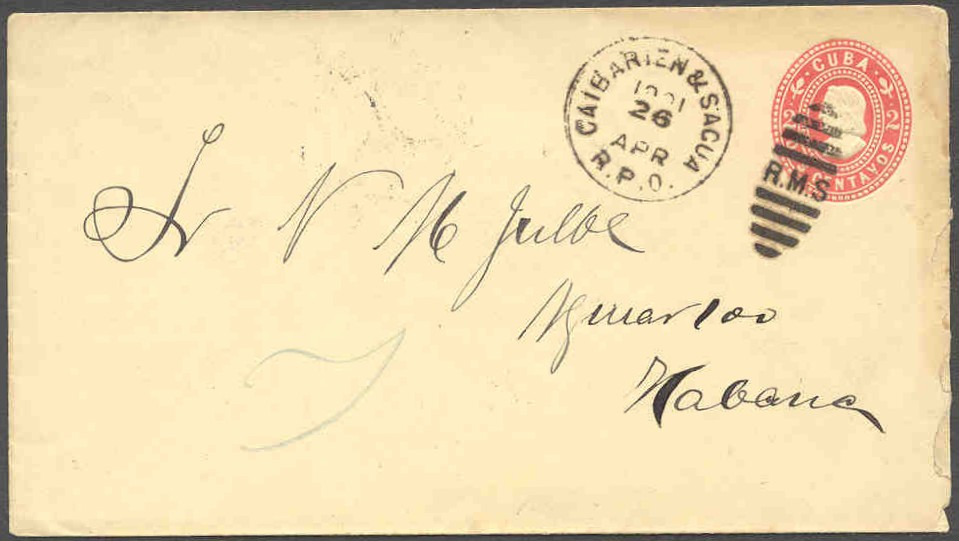 CAIBARIEN & SAGUA
1901
26
APR
R.P.O.
CUBA
2 2
CENTAVOS
R.M.S
Sr N M Julbe
Habana